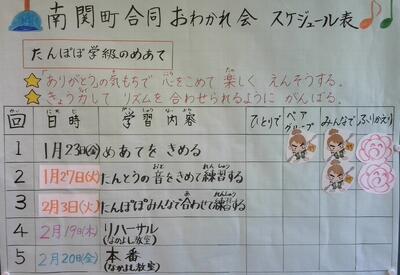 南関町合同 おわかれ会 スケジュール表
たんぽぽ学級のめあて
「ありがとう」の気もちで 心をこめて 楽しく えんそうする。
きょう力して リズムを 合わせられるように がんばる。
回 日時 学習内容 ひとりで ペア グループ みんなで ふりかえり
1 1月23日(金) めあてを きめる
2 1月27日(火) たんとうの 音をきめて練習する
3 2月3日(火) たんぽぽみんなで合わせて練習する
4 2月19日(木) リハーサル (なかよし教室)
5 2月20日(金) 本番 (なかよし教室)